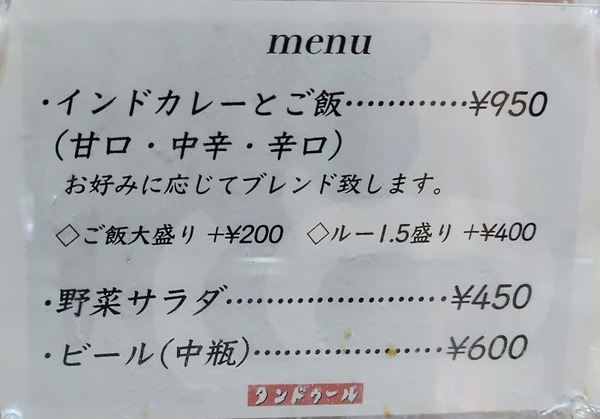 menu
・インドカレーとご飯…………¥950
(甘口・中辛・辛口)
お好みに応じてブレンド致します。
◇ご飯大盛り +¥200 ◇ルー1.5盛り +¥400
・野菜サラダ…………………¥450
・ビール(中瓶)………………¥600
タンドゥール